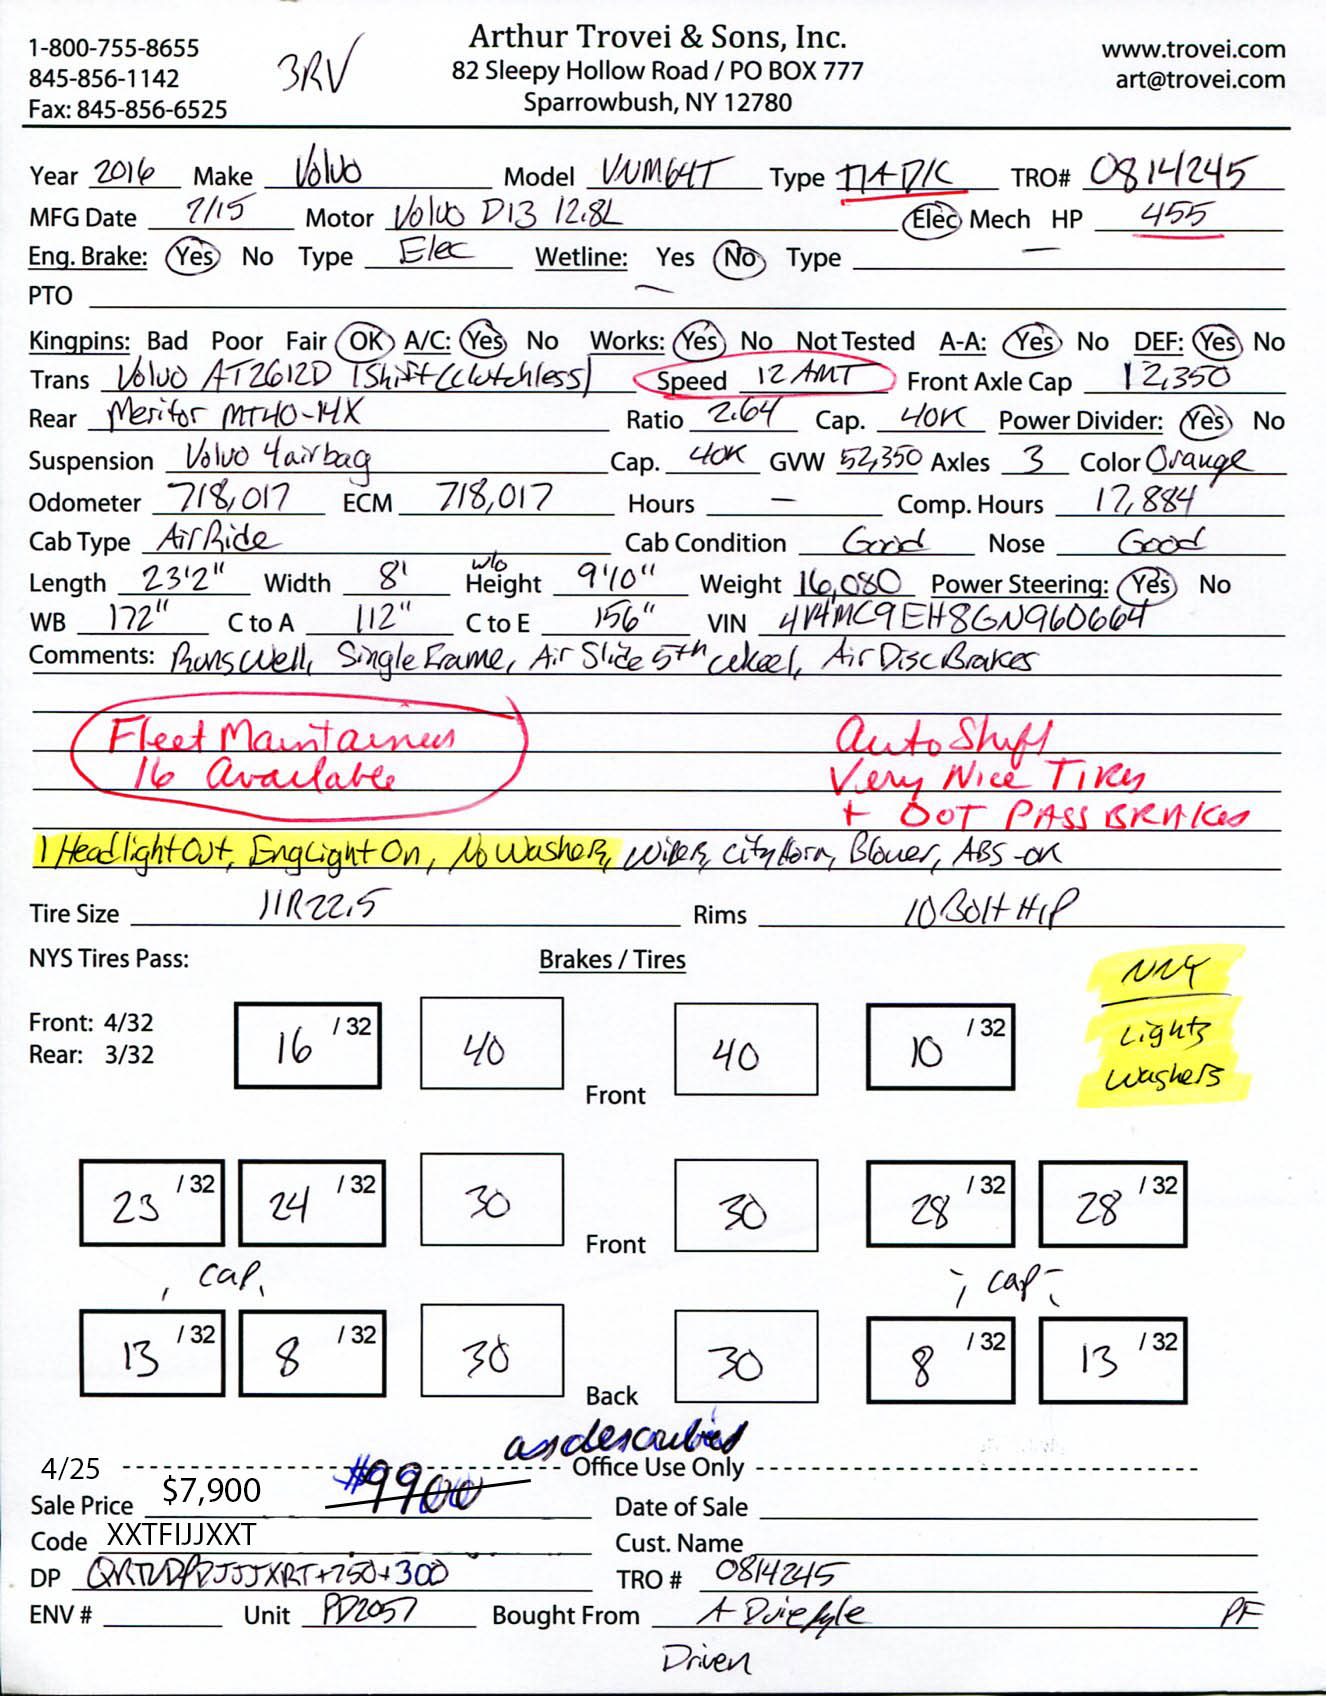 1-800-755-8655
845-856-1142
Fax: 845-856-6525
3RV
Arthur Trovei & Sons, Inc.
82 Sleepy Hollow Road / PO BOX 777
Sparrowbush, NY 12780
www.trovei.com
art@trovei.com
Year 2016 Make Volvo Model VNM64T Type T/A D/C TRO# 0814245
MFG Date 7/15 Motor Volvo D13 12.8L Elec Mech HP 455
Eng. Brake: Yes No Type Elec Wetline: Yes No Type —
PTO
Kingpins: Bad Poor Fair OK A/C: Yes No Works: Yes No Not Tested A-A: Yes No DEF: Yes No
Trans Volvo AT2612D IShift (clutchless) Speed 12 AMT Front Axle Cap 12,350
Rear Meritor MT40-14X Ratio 2.64 Cap. 40K Power Divider: Yes No
Suspension Volvo 4airbag Cap. 40K GVW 52,350 Axles 3 Color Orange
Odometer 718,017 ECM 718,017 Hours — Comp. Hours 17,884
Cab Type AirRide Cab Condition Good Nose Good
Length 23'2" Width 8' w/o Height 9'10" Weight 16,080 Power Steering: Yes No
WB 172" C to A 112" C to E 156" VIN 4V4MC9EH8GN960664
Comments: Runs Well, Single Frame, Air Slide 5th wheel, Air Disc Brakes
Fleet Maintained
16 Available
Auto Shift
Very Nice Tires
+ DOT PASS BRAKES
1 Headlight Out, Eng Light On, No Washers, Wipers, City Horn, Blower, ABS -OK
Tire Size 11R22.5 Rims 10 Bolt H/P
NYS Tires Pass: Brakes / Tires
Front: 4/32
Rear: 3/32
NNY
Lights
Washers
16 /32 40 Front 40 10 /32
23 /32 24 /32 30 Front 30 28 /32 28 /32
, cap, ; cap ;
13 /32 8 /32 30 Back 30 8 /32 13 /32
as described
4/25 Office Use Only
Sale Price $7,900 $9900 Date of Sale
Code XXTFIJJXXT Cust. Name
DP +750+300 TRO # 0814245
ENV # Unit PD2057 Bought From PF
Driven